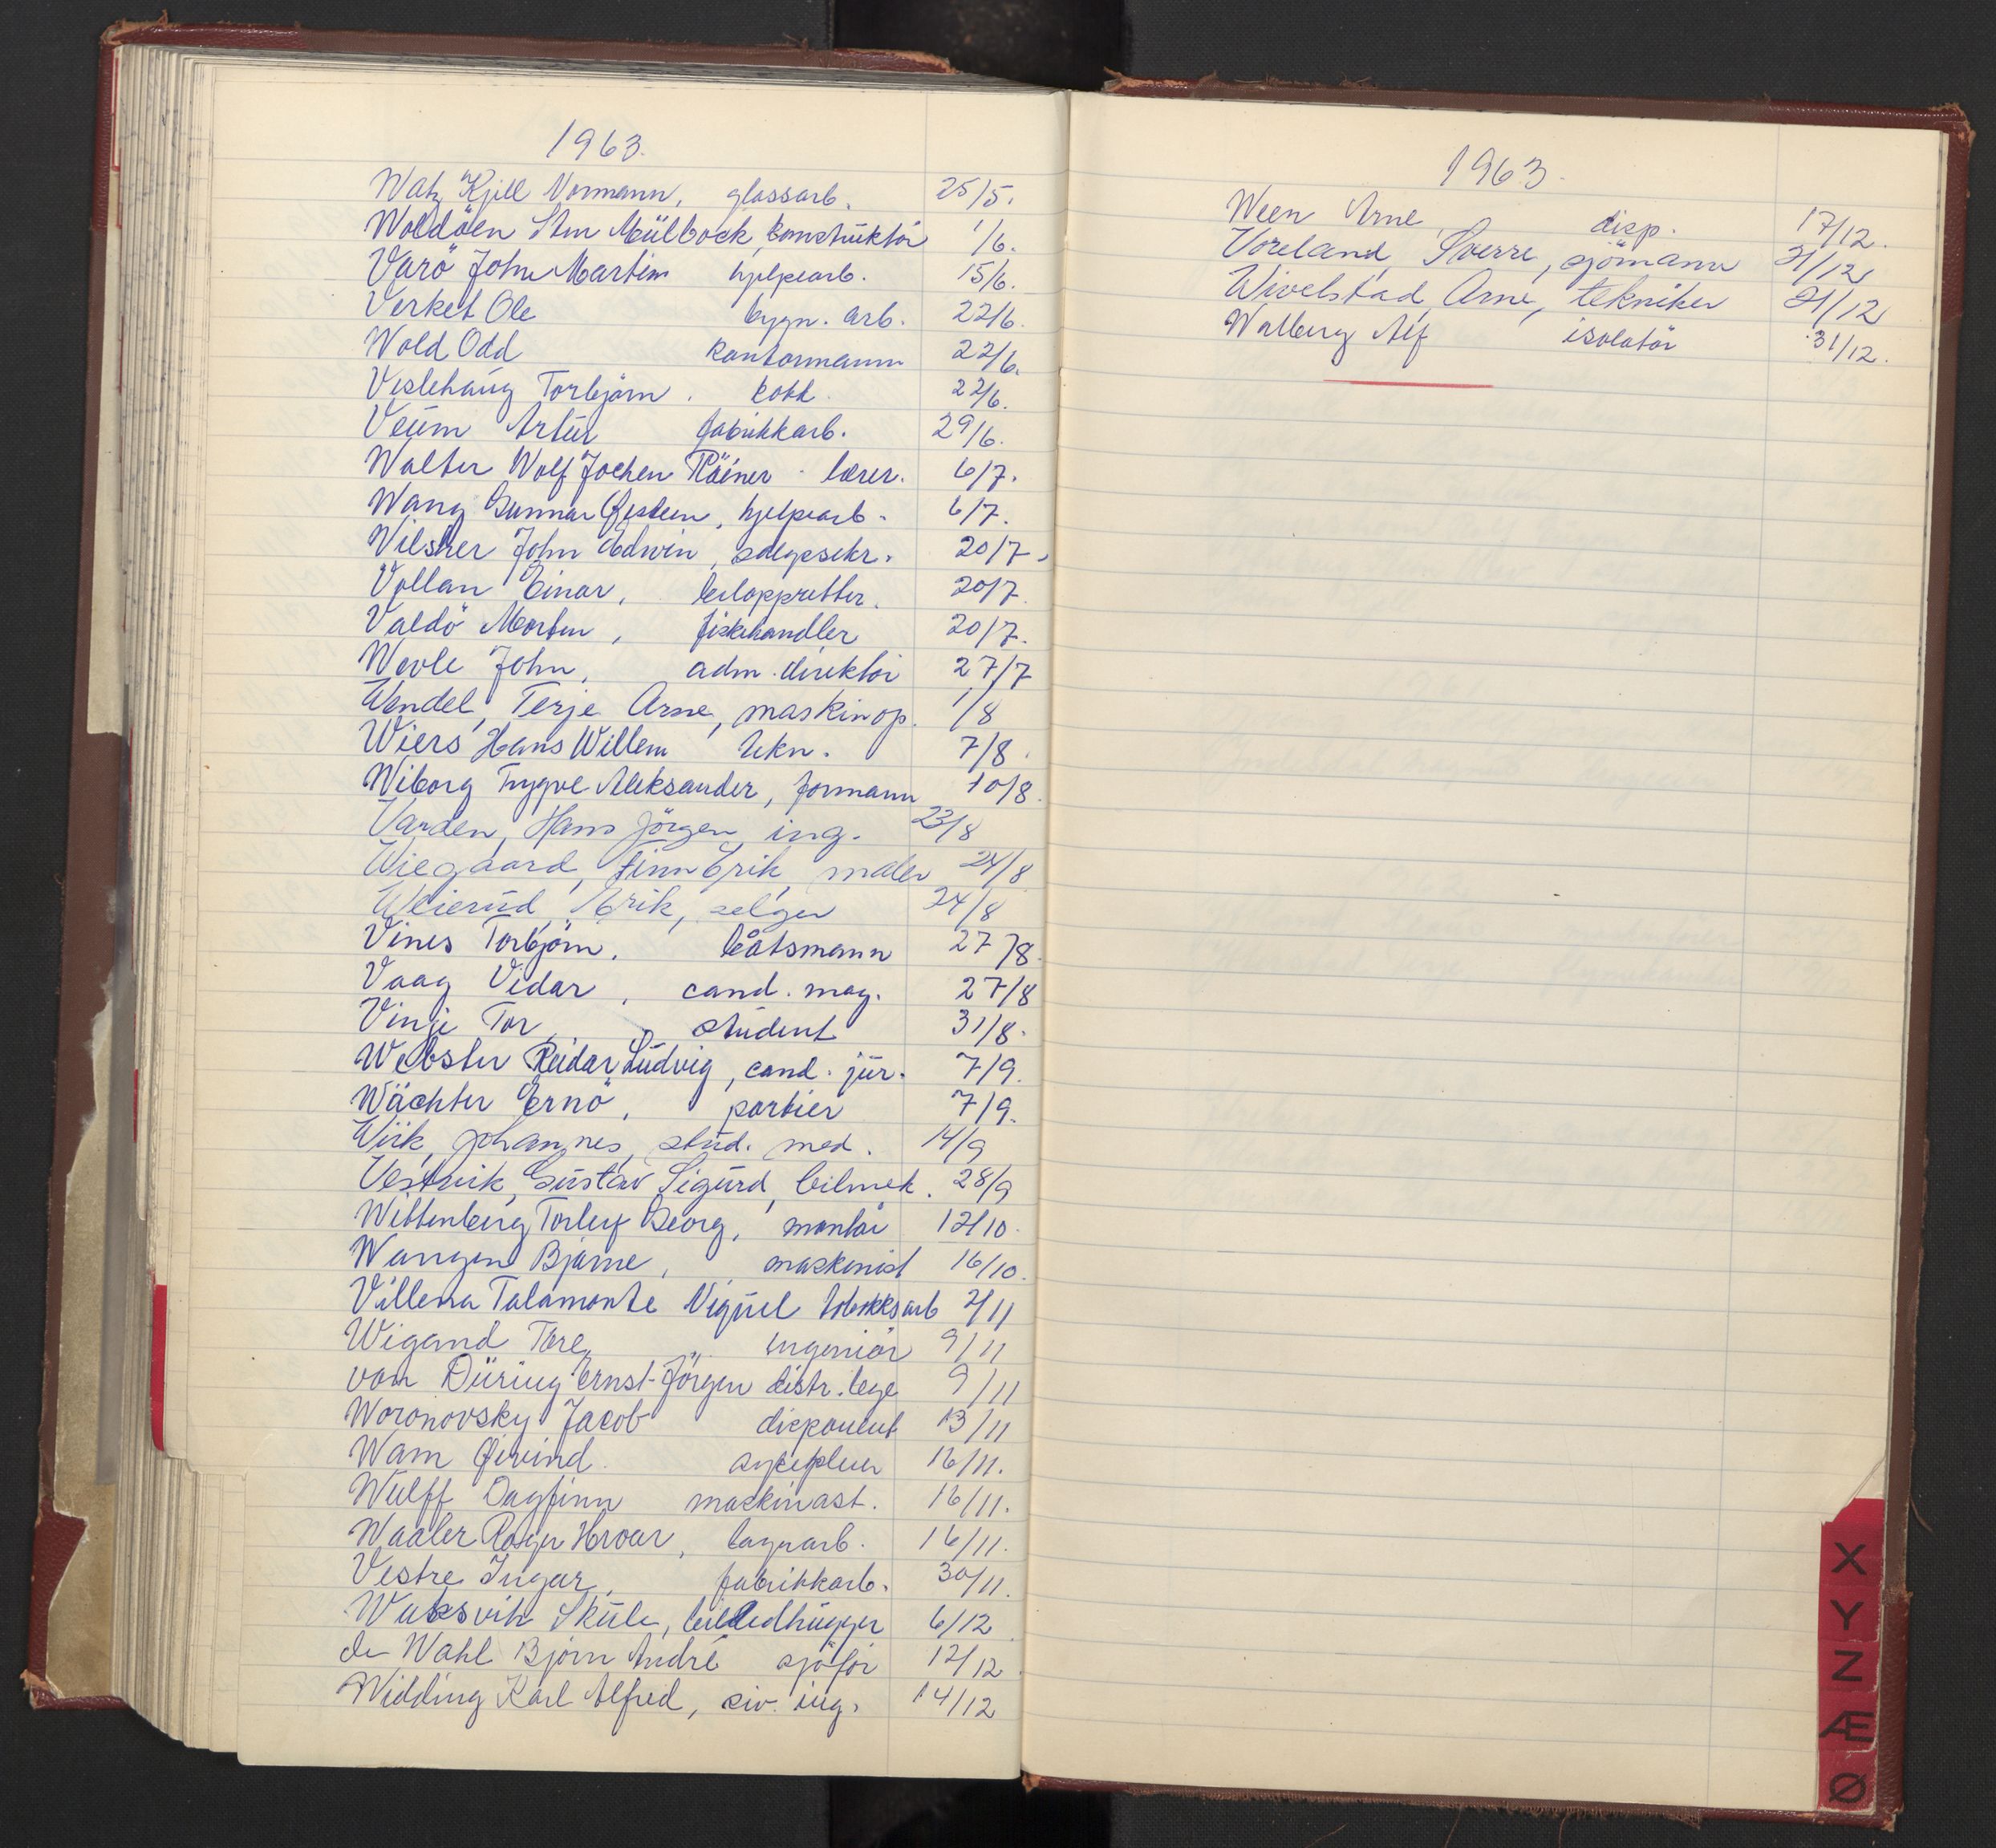 1963.
Watz Kjell Normann, glassarb. 25/5.
Woldöen Sten Mülbock konstruktör 1/6.
Varö John Martin hjelpearb. 15/6.
Verket Ole bygn. arb. 22/6.
Wold Odd kontormann 22/6.
Veslehaug Torbjörn. kokk 22/6.
Veum Artur fabrikkarb. 29/6.
Walter Wolf Jochen Räiner lærer. 6/7.
Wang Gunnar Øistein, hjelpearb. 6/7.
Vilsher John Edwin, salgssekr. 20/7.
Vollan Einar, biloppretter. 20/7
Valdö Morten, fiskehandler 20/7.
Wevle John, adm. direktör 27/7
Wendel, Terje Arne, maskinop. 1/8
Wiers Hans Willem tekn. 7/8.
Wiborg Trygve Aleksander, formann 10/8.
Varden, Hans Jörgen, ing. 23/8
Wiegaard, Finn Erik, maler 24/8
Weierud, Erik, selger 24/8
Vines Torbjörn, båtsmann 27/8.
Vaag Vidar, cand. mag. 27/8
Vinje Tor, student 31/8.
Webster Reidar Ludvig, cand. jur. 7/9.
Wächter Ernö, portier 7/9.
Wiik, Johannes, stud. med. 14/9
Vestvik, Gustav Sigurd, bilmek. 28/9
Wittenberg Torleif Georg, montör 12/10.
Wangen Bjarne, maskinist 16/10.
Villena Talamonte Niguel tobakksarb 2/11
Wigand Tore, ingeniör 9/11
von Düring Ernst-Jörgen distr. lege 9/11
Woronovsky Jacob disponent 13/11
Wam Øivind sykepleier 16/11.
Wulff Dagfinn maskinast. 16/11.
Waaler Roger Hroar, lagerarb. 16/11.
Vestre Ingar, fabrikkarb. 30/11.
Waksvik Skule, billedhugger 6/12
de Wahl Björn André sjåför 12/12
Widding Karl Alfred, siv. ing. 14/12
1963.
Ween Arne disp. 17/12.
Voreland, Sverre, sjömann 21/12
Wivelstad, Arne, tekniker 21/12
Walberg Alf isolatör 31/12.
X
Y
Z
Æ
Ø